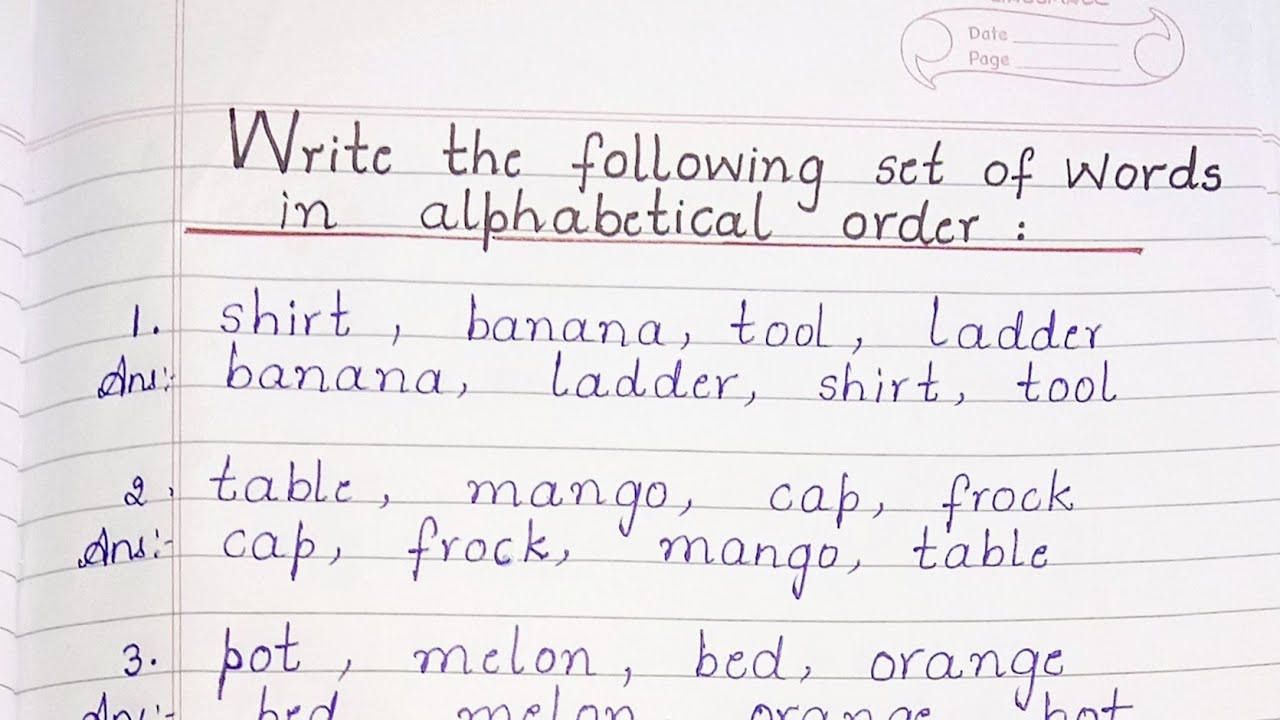 Date
Page
Write the following set of words
in alphabetical order :
1. shirt , banana, tool, ladder
Ans:- banana, ladder, shirt, tool
2. table, mango, cap, frock
Ans:- cap, frock, mango, table
3. pot , melon, bed, orange
Ans:- bed melon orange pot